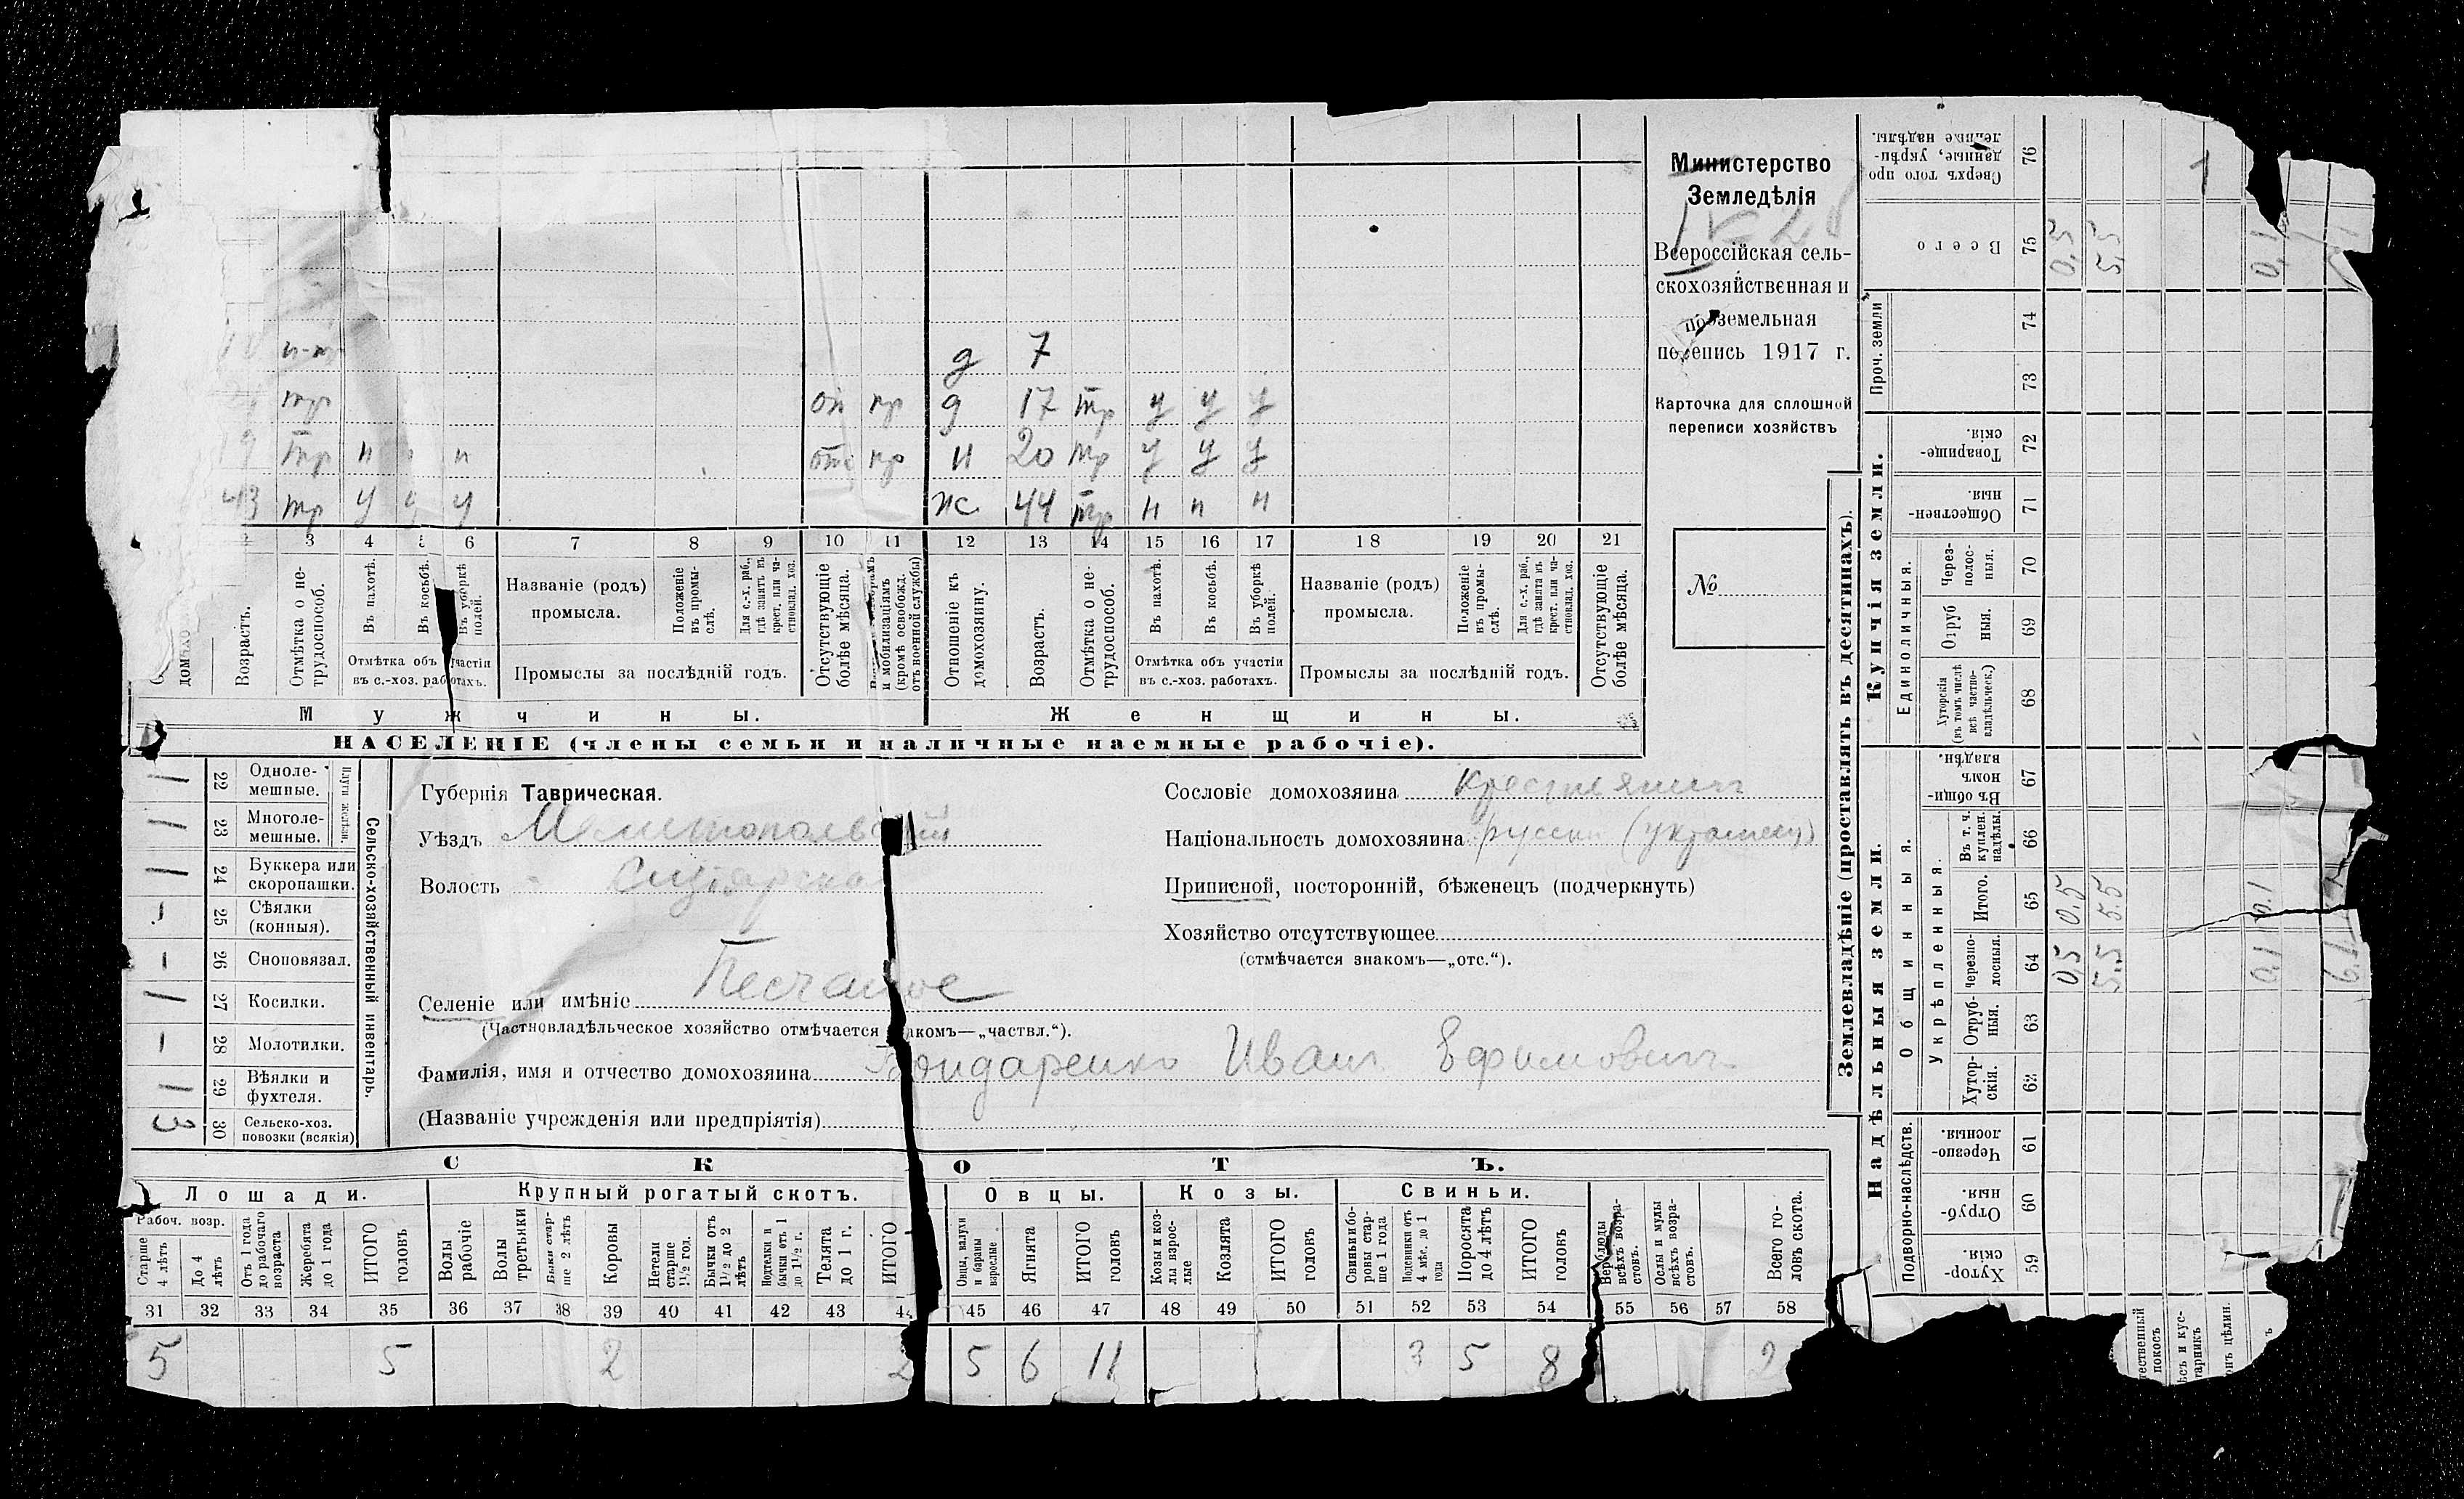 д 7
тр оп пр д 17 тр у у у
9 тр н п отс пр н 20 тр у у у
43 тр у у у ж 44 тр н п н
3 4 6 7 8 9 10 11 12 13 14 15 16 17 18 19 20 21
Возрастъ.
Отмѣтка о не-
трудоспособ.
Въ пахотѣ.
Въ косьбѣ.
Въ уборкѣ
полей.
Отмѣтка объ участіи
въ с.-хоз. работахъ.
Названіе (родъ)
промысла.
Положеніе
въ промы-
слѣ.
Для с.-х. раб.,
гдѣ занятъ въ
крест. или ча-
стновлад. хоз.
Промыслы за послѣдній годъ.
Отсутствующіе
болѣе мѣсяца.
и мобилизаціямъ
(кромѣ освобожд.
отъ военной службы)
Отношеніе къ
домохозяину.
Возрастъ.
Отмѣтка о не-
трудоспособ.
Въ пахотѣ.
Въ косьбѣ.
Въ уборкѣ
полей.
Отмѣтка объ участіи
въ с.-хоз. работахъ.
Названіе (родъ)
промысла.
Положеніе
въ промы-
слѣ.
Для с.-х. раб.,
гдѣ занята въ
крест. или ча-
стновлад. хоз.
Промыслы за послѣдній годъ.
Отсутствующіе
болѣе мѣсяца.
Мужчины.
Женщины.
НАСЕЛЕНІЕ (члены семьи и наличные наемные рабочіе).
Министерство
Земледѣлія
Всероссійская сель-
скохозяйственная и
поземельная
перепись 1917 г.
Карточка для сплошной
переписи хозяйствъ
№
1 22 Одноле-
мешные.
1 23 Многоле-
мешные.
1 24 Буккера или
скоропашки.
- 25 Сѣялки
(конныя).
- 26 Сноповязал.
1 27 Косилки.
- 28 Молотилки.
1 29 Вѣялки и
фухтеля.
3 30 Сельско-хоз.
повозки (всякія)
Сельско-хозяйственный инвентарь.
Губернія Таврическая.
Уѣздъ Мелитопольскій
Волость
Селеніе или имѣніе Песчаное
(Частновладѣльческое хозяйство отмѣчается знакомъ—„частвл.“).
Фамилія, имя и отчество домохозяина Бондаренко Иванъ Ефимовичъ
(Названіе учрежденія или предпріятія)
Сословіе домохозяина крестьянинъ
Національность домохозяина русскій
Приписной, посторонній, бѣженецъ (подчеркнуть)
Хозяйство отсутствующее
(отмѣчается знакомъ—„отс.“).
СКОТЪ.
Лошади.
Крупный рогатый скотъ.
Овцы.
Козы.
Свиньи.
Рабоч. возр.
Старше
4 лѣтъ
До 4
лѣтъ
Отъ 1 года
до рабочаго
возраста
Жеребята
до 1 года
ИТОГО
головъ
Волы
рабочіе
Волы
третьяки
Быки стар-
ше 2 лѣтъ
Коровы
Нетели
старше
1½ год.
Бычки отъ
1½ до 2
лѣтъ
Нетельки и
бычки отъ 1
до 1½ г.
Телята
до 1 г.
ИТОГО
Овцы, валухи
и бараны
взрослые
Ягнята
ИТОГО
головъ
Козы и коз-
лы взрос-
лые
Козлята
ИТОГО
головъ
Свиньи и бо-
ровы стар-
ше 1 года
Подсвинки отъ
4 мѣс. до 1
года
Поросята
до 4 лѣтъ
ИТОГО
головъ
Верблюды
всѣхъ возра-
стовъ.
Ослы и мулы
всѣхъ возра-
стовъ.
Всего го-
ловъ скота.
31 32 33 34 35 36 37 38 39 40 41 42 43 44 45 46 47 48 49 50 51 52 53 54 55 56 57 58
5 5 2 2 5 6 11 3 5 8 2
Землевладѣніе (проставлять въ десятинахъ).
Надѣльныя земли.
Купчія земли.
Проч. земли
Подворно-наслѣдств.
Общинныя.
Укрѣпленныя.
Единоличныя.
Хутор-
скія. 59
Отруб-
ныя. 60
Черезпо-
лосныя. 61
Хутор-
скія. 62
Отруб-
ныя. 63
Черезпо-
лосныя. 64
Итого. 65
Въ т. ч.
куплен.
надѣлы. 66
Въ общи-
номъ
владѣн. 67
Хуторскія
(въ томъ числѣ
всѣ частно-
владѣльческ.) 68
Отруб
ныя. 69
Через-
полос-
ныя. 70
Обществен-
ныя. 71
Товарище-
скія. 72
73
74
Всего 75
Сверхъ того про
данные, укрѣп-
ленные надѣлы. 76
0,5 0,5 0,5
5,5 5,5 5,5
0,1 0,1 0,1
6,1
покосъ
тарникъ